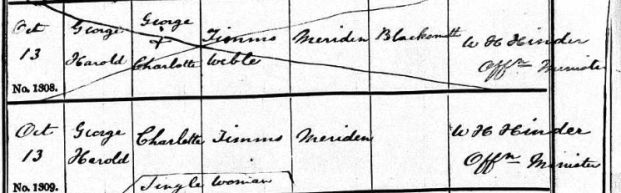 Oct George George Timms Meriden Blacksmith W H Hinder
13 Harold + Charlotte Offn Minister
No. 1308.
Oct George Charlotte Timms Meriden W H Hinder
13 Harold Offn Minister
Single Woman
No. 1309.